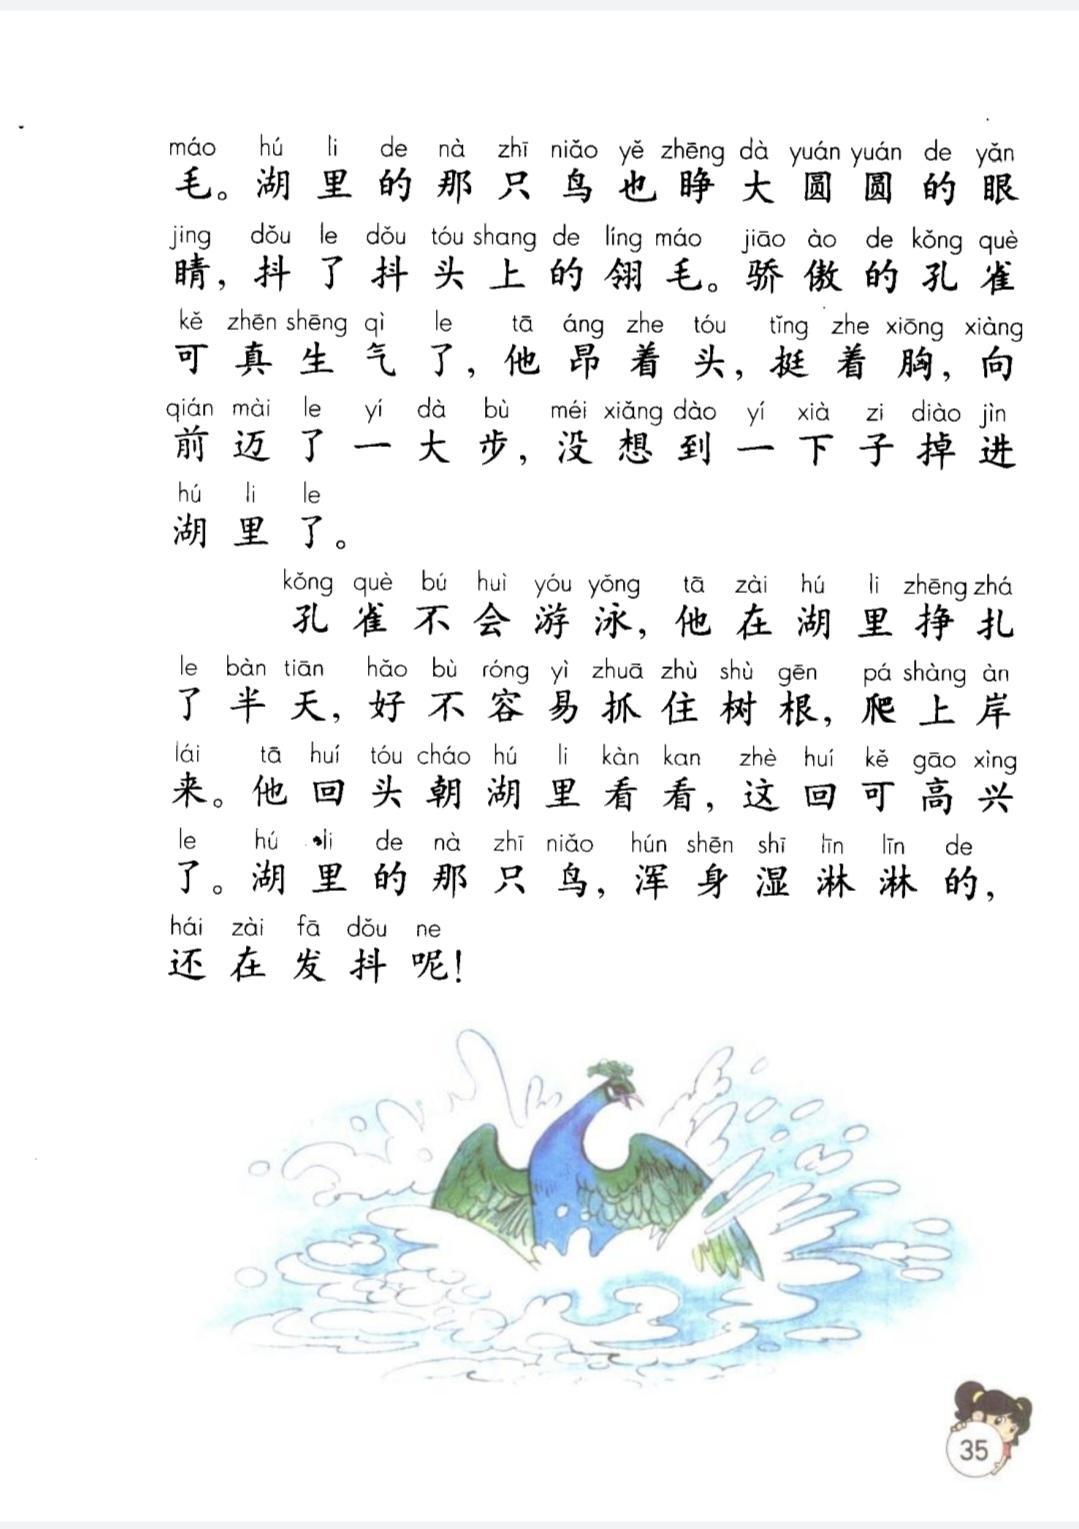 máo hú li de nà zhī niǎo yě zhēng dà yuán yuán de yǎn
毛。湖里的那只鸟也睁大圆圆的眼
jing dǒu le dǒu tóu shang de líng máo jiāo ào de kǒng què
睛，抖了抖头上的翎毛。骄傲的孔雀
kě zhēn shēng qì le tā áng zhe tóu tǐng zhe xiōng xiàng
可真生气了，他昂着头，挺着胸，向
qián mài le yí dà bù méi xiǎng dào yí xià zi diào jìn
前迈了一大步，没想到一下子掉进
hú li le
湖里了。
kǒng què bú huì yóu yǒng tā zài hú li zhēng zhá
孔雀不会游泳，他在湖里挣扎
le bàn tiān hǎo bù róng yì zhuā zhù shù gēn pá shàng àn
了半天，好不容易抓住树根，爬上岸
lái tā huí tóu cháo hú li kàn kan zhè huí kě gāo xìng
来。他回头朝湖里看看，这回可高兴
le hú li de nà zhī niǎo hún shēn shī līn līn de
了。湖里的那只鸟，浑身湿淋淋的，
hái zài fā dǒu ne
还在发抖呢！
35